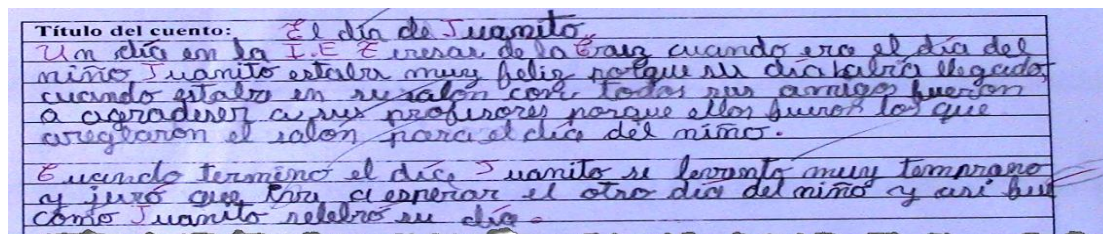 Título del cuento: El día de Juanito
Un día en la I.E Teresa de la Cruz cuando era el día del
niño Juanito estaba muy feliz porque su día había llegado,
cuando estaba en su salón con todos sus amigos fueron
a agradeser a sus profesores porque ellos fueron los que
areglaron el salon para el dia del niño.
Cuando termino el día Juanito se levanto muy temprano
y juró que iva a esperar el otro día del niño y asi fue
como Juanito selebró su día.